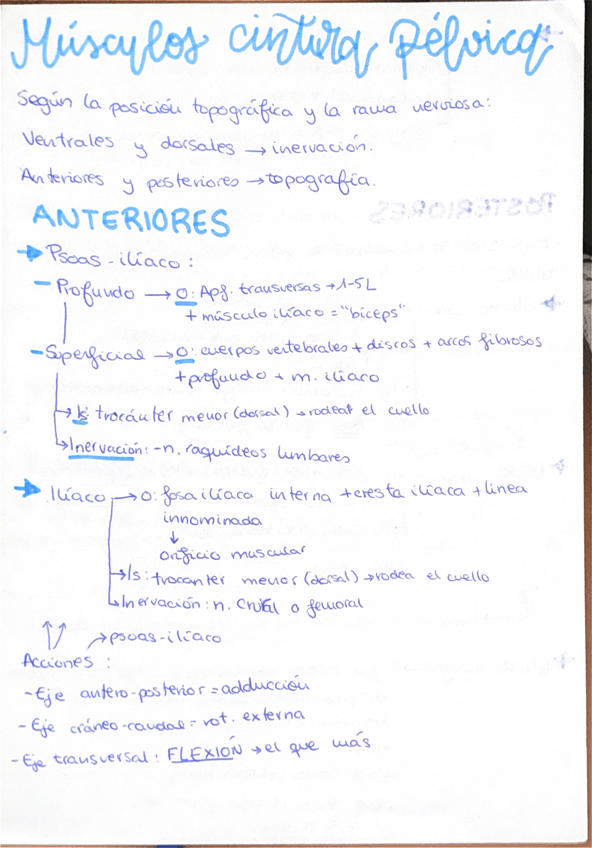 Músculos cintura Pélvica
Según la posición topográfica y la rama nerviosa:
Ventrales y dorsales → inervación.
Anteriores y posteriores → topografía.
ANTERIORES
→ Psoas-ilíaco:
- Profundo → O: Apf. transversas → 1-5L
+ músculo ilíaco = "bíceps"
- Superficial → O: cuerpos vertebrales + discos + arcos fibrosos
+ profundo + m. ilíaco
→ Is: trocánter menor (dorsal) → rodear el cuello
→ Inervación: - n. raquídeos lumbares
→ Ilíaco → O: fosa ilíaca interna + cresta ilíaca + línea
innominada
↓
orificio muscular
→ Is: trocanter menor (dorsal) → rodea el cuello
→ Inervación: n. crural o femoral
→ psoas-ilíaco
Acciones:
- Eje antero-posterior = adducción
- Eje cráneo-caudal = rot. externa
- Eje transversal: FLEXIÓN → el que más
POSTERIORES